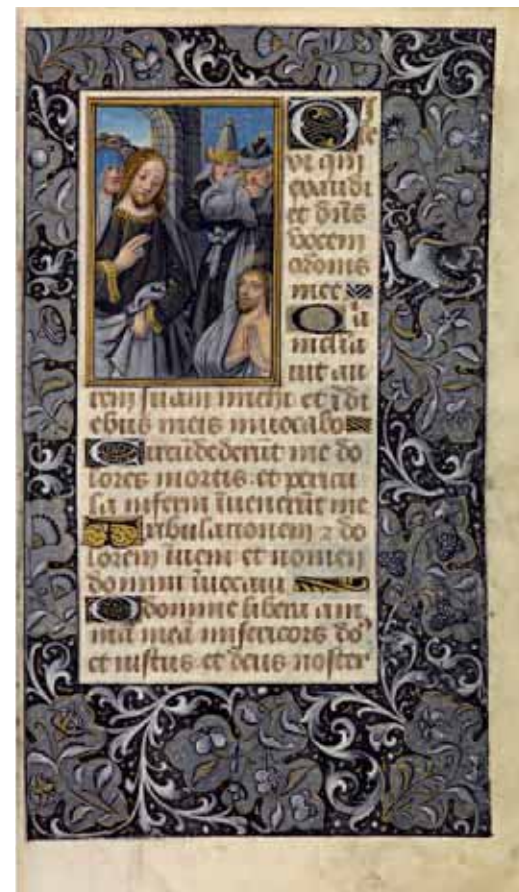 Dile
xi qui
exaudi
et dn̄s
vocem
or̄onis
mee
Q̄ia
inclīa
uit au
rem suam michi et ī di
ebus meis inuocabo
Circūdederūt me do
lores mortis et pericu
la inferni īuenerūt me
Tribulationem ⁊ do
lorem īueni et nomen
domini īuocaui
O domine libera ani
mā meā misericors dō
et iustus et deus noster